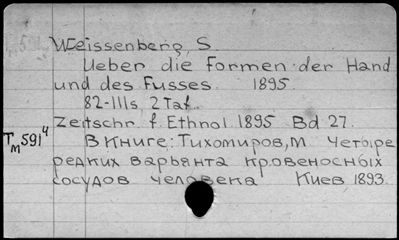 Weissenberg, S.
Ueber die Formen der Hand
und des Fusses. 1895.
82-111s. 2 Taf.
Zeitschr. f. Ethnol 1895 Bd 27.
Tm 591⁴ В книге: Тихомиров, М Четыре
редких варьянта кровеносных
сосудов человека Киев 1893.